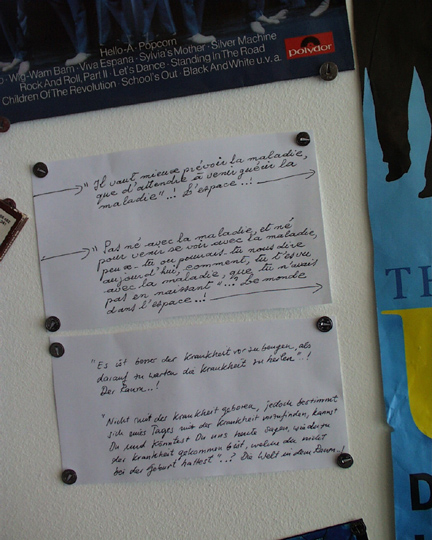 Hello-A · Popcorn
Wig-Wam Bam · Viva Espana · Sylvia's Mother · Silver Machine
Rock And Roll, Part II · Let's Dance · Standing In The Road
Children Of The Revolution · School's Out · Black And White u.v.a.
polydor
"Il vaut mieux prévoir la maladie,
que d'attendre à venir guérir la
maladie"..! L'espace...
"Pas né avec la maladie, et né
pour venir se voir avec la maladie,
peux-tu ou pouvais-tu nous dire
aujourd'hui, comment, tu t'es vu
avec la maladie, que tu n'avais
pas en naissant"... Le monde
dans l'espace..!
"Es ist besser der Krankheit vorzubeugen, als
darauf zu warten die Krankheit zu heilen"..!
Der Raum..!
"Nicht mit der Krankheit geboren, jedoch bestimmt
sich eines Tages mit der Krankheit vorzufinden, kannst
Du und könntest Du uns heute sagen, wie du zu
der Krankheit gekommen bist, welche du nicht
bei der Geburt hattest"..? Die Welt in dem Raum..!
TH
U
D